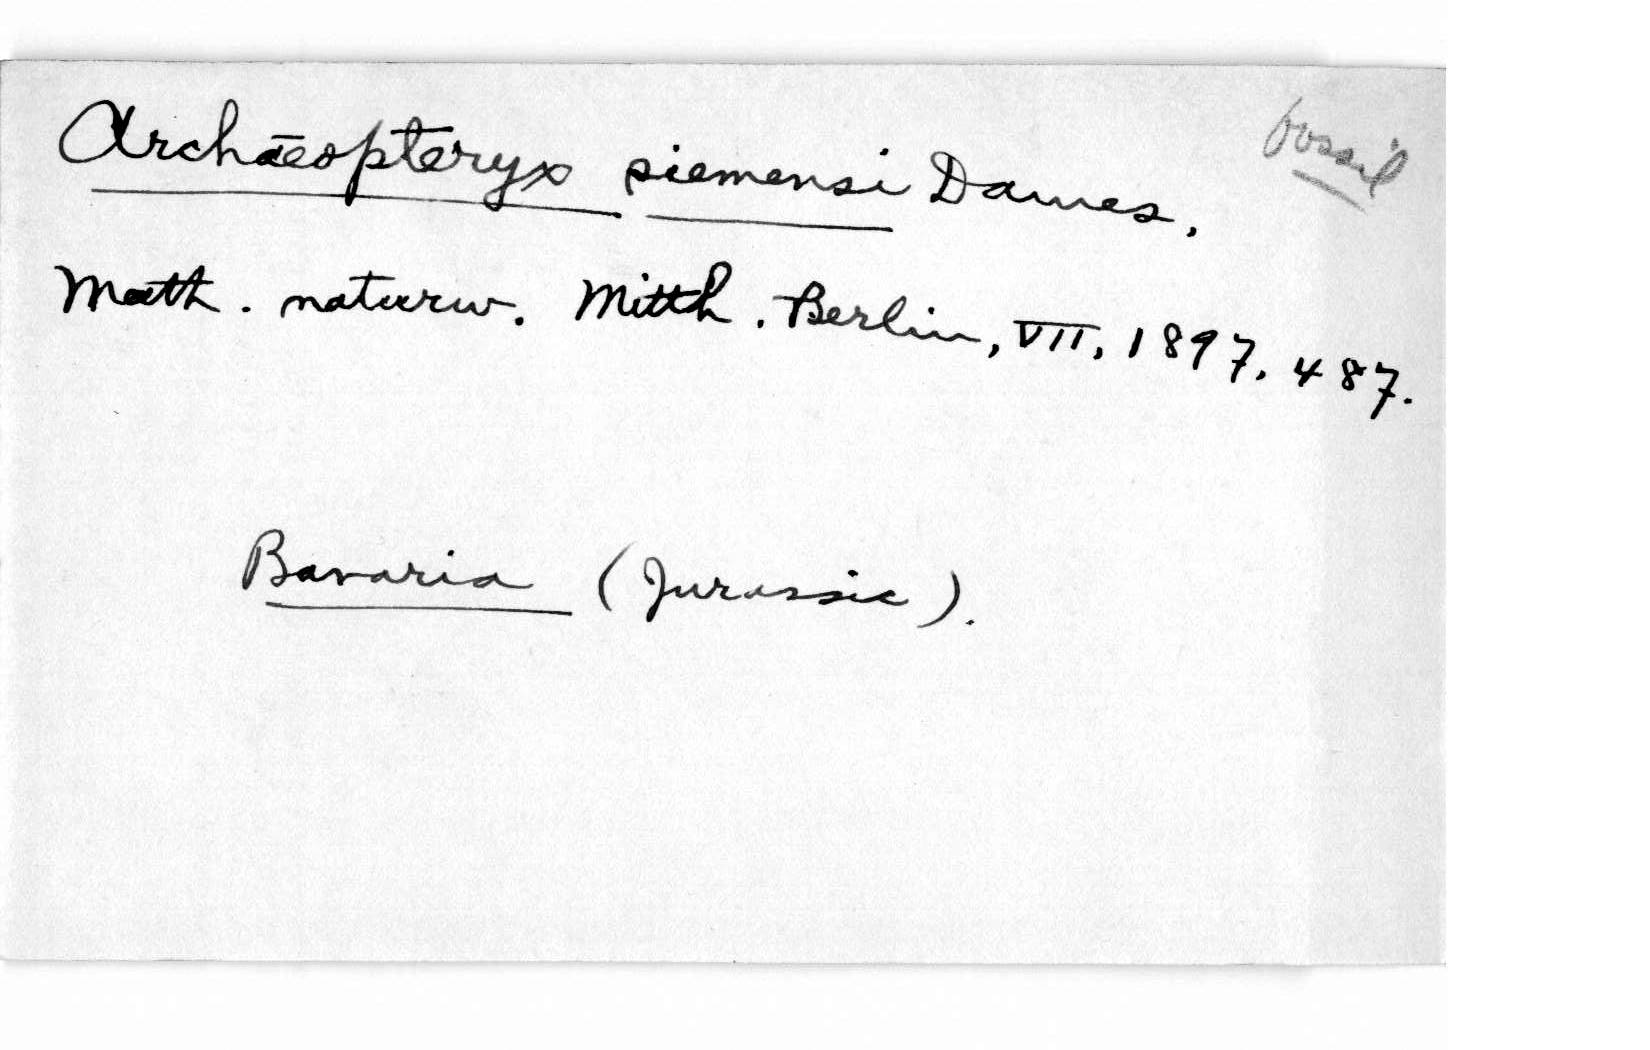 Archaeopteryx siemensi Dames,
fossil
Math. naturw. Mitth. Berlin, VII, 1897, 487.
Bavaria (Jurassic).